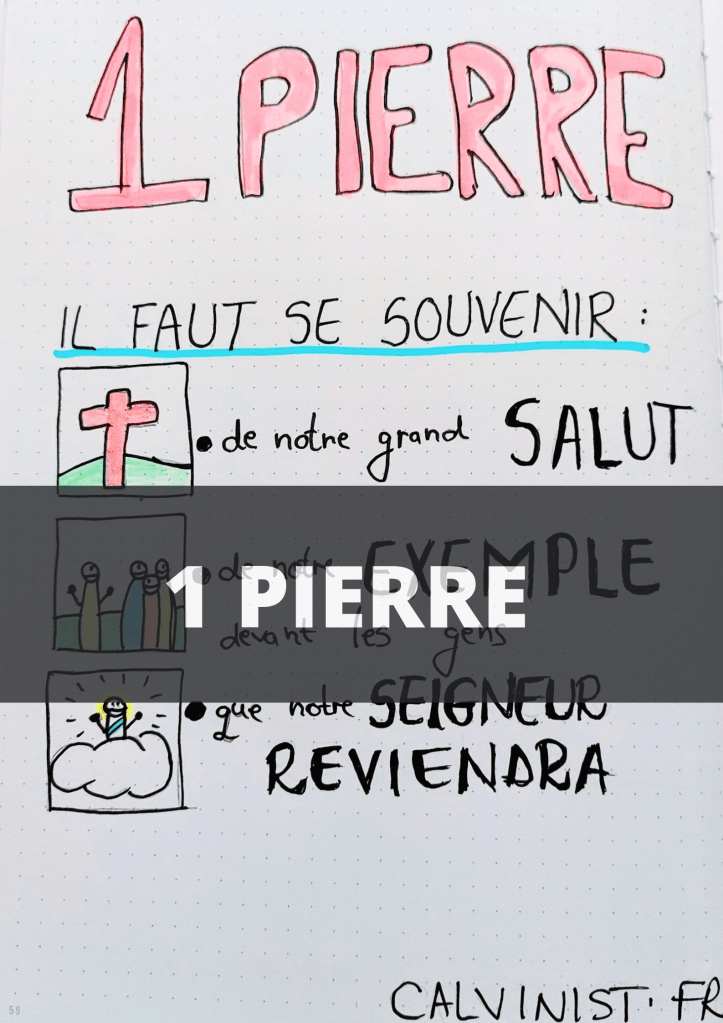 1 PIERRE
IL FAUT SE SOUVENIR :
• de notre grand SALUT
• de notre EXEMPLE
1 PIERRE
devant les gens
• que notre SEIGNEUR
REVIENDRA
CALVINIST.FR
59